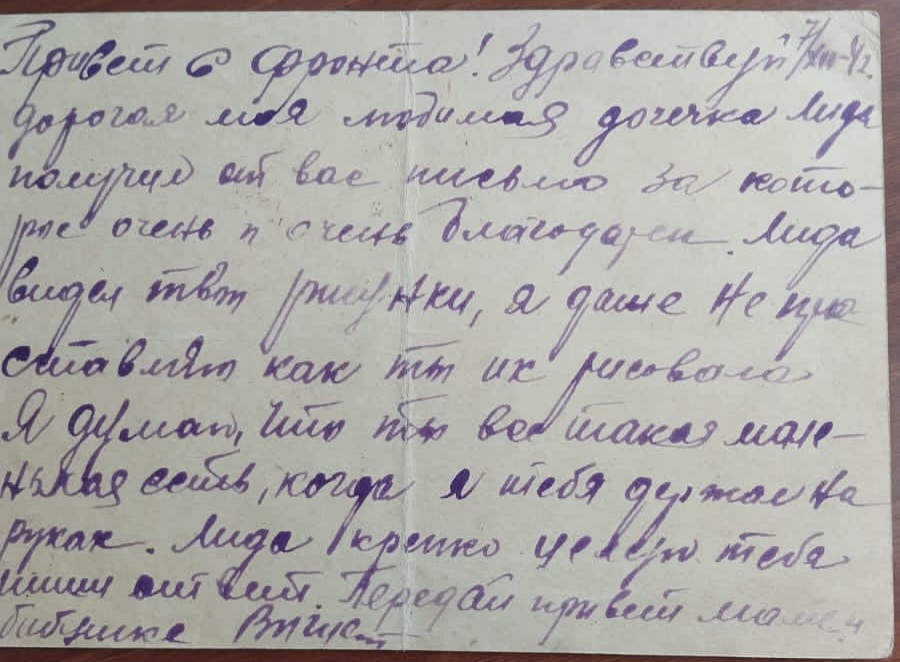 Привет с фронта! Здравствуй 7/XII-41г.
дорогая моя любимая дочечка Лида
получил от вас письмо за кото-
рое очень и очень благодарен Лида
видел твои рисунки, я даже не пре
ставляю как ты их рисовала
Я думал, что ты все такая мале-
нькая есть, когда я тебя держал на
руках. Лида крепко целую тебя
пиши ответ. Передай привет маме и
бабушке